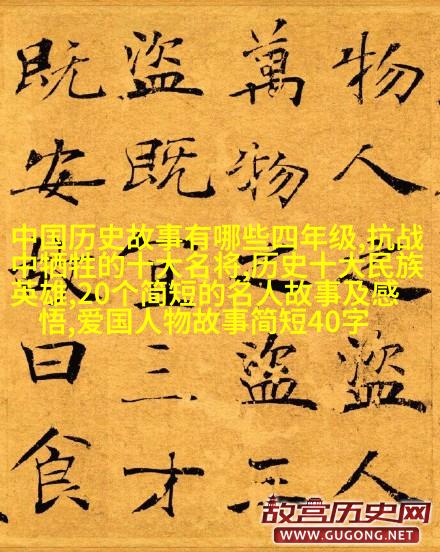 物人之盜人
萬物之盜三
盜既宜三才
既安故曰食
中国历史故事有哪些四年级,抗战
中牺牲的十大名将,历史十大民族
英雄,20个简短的名人故事及感
悟,爱国人物故事简短40字
故宫历史网
WWW.GUGONG.NET